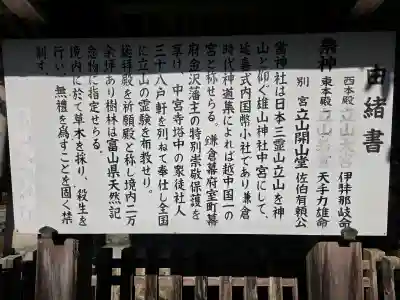 由緒書
祭神
西本殿 立山大宮 伊弉那岐命
東本殿 立山若宮 天手力雄命
別宮 立山開山堂 佐伯有頼公
當神社は日本三霊山立山を神
山と仰ぐ雄山神社中宮にして、
延喜式内国幣小社であり鎌倉
時代神道集によれば越中国一の
宮と称せらる。鎌倉幕府室町幕
府金沢藩主の特別崇敬保護を
享け、中宮寺塔中の衆徒社人
三十八戸軒を列ねて奉仕し全国
に立山の霊験を布教せり。
諸拝殿を祈願殿と称し境内二万
余坪あり樹林は富山県天然記
念物に指定せらる。
境内に於て草木を採り、殺生を
行い、無禮を為すことを固く禁
制す。